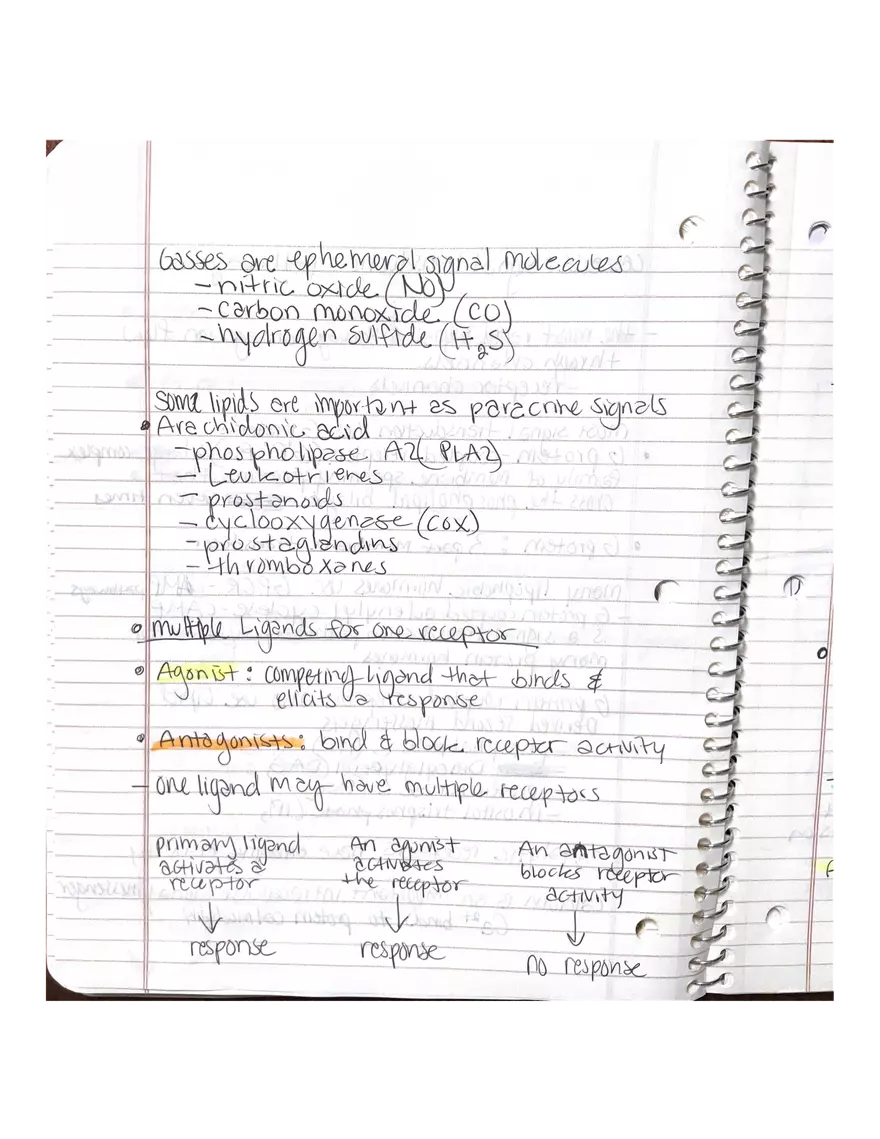 Gasses are ephemeral signal molecules
- nitric oxide (NO)
- carbon monoxide (CO)
- hydrogen sulfide (H₂S)
Some lipids are important as paracrine signals
• Arachidonic acid
- phospholipase A2 (PLA2)
- Leukotrienes
- prostanoids
- cyclooxygenase (COX)
- prostaglandins
- thromboxanes
• Multiple Ligands for one receptor
• Agonist: competing ligand that binds &
elicits a response
• Antagonists: bind & block receptor activity
- one ligand may have multiple receptors
primary ligand An agonist An antagonist
activates a activates blocks receptor
receptor the receptor activity
↓ ↓ ↓
response response no response